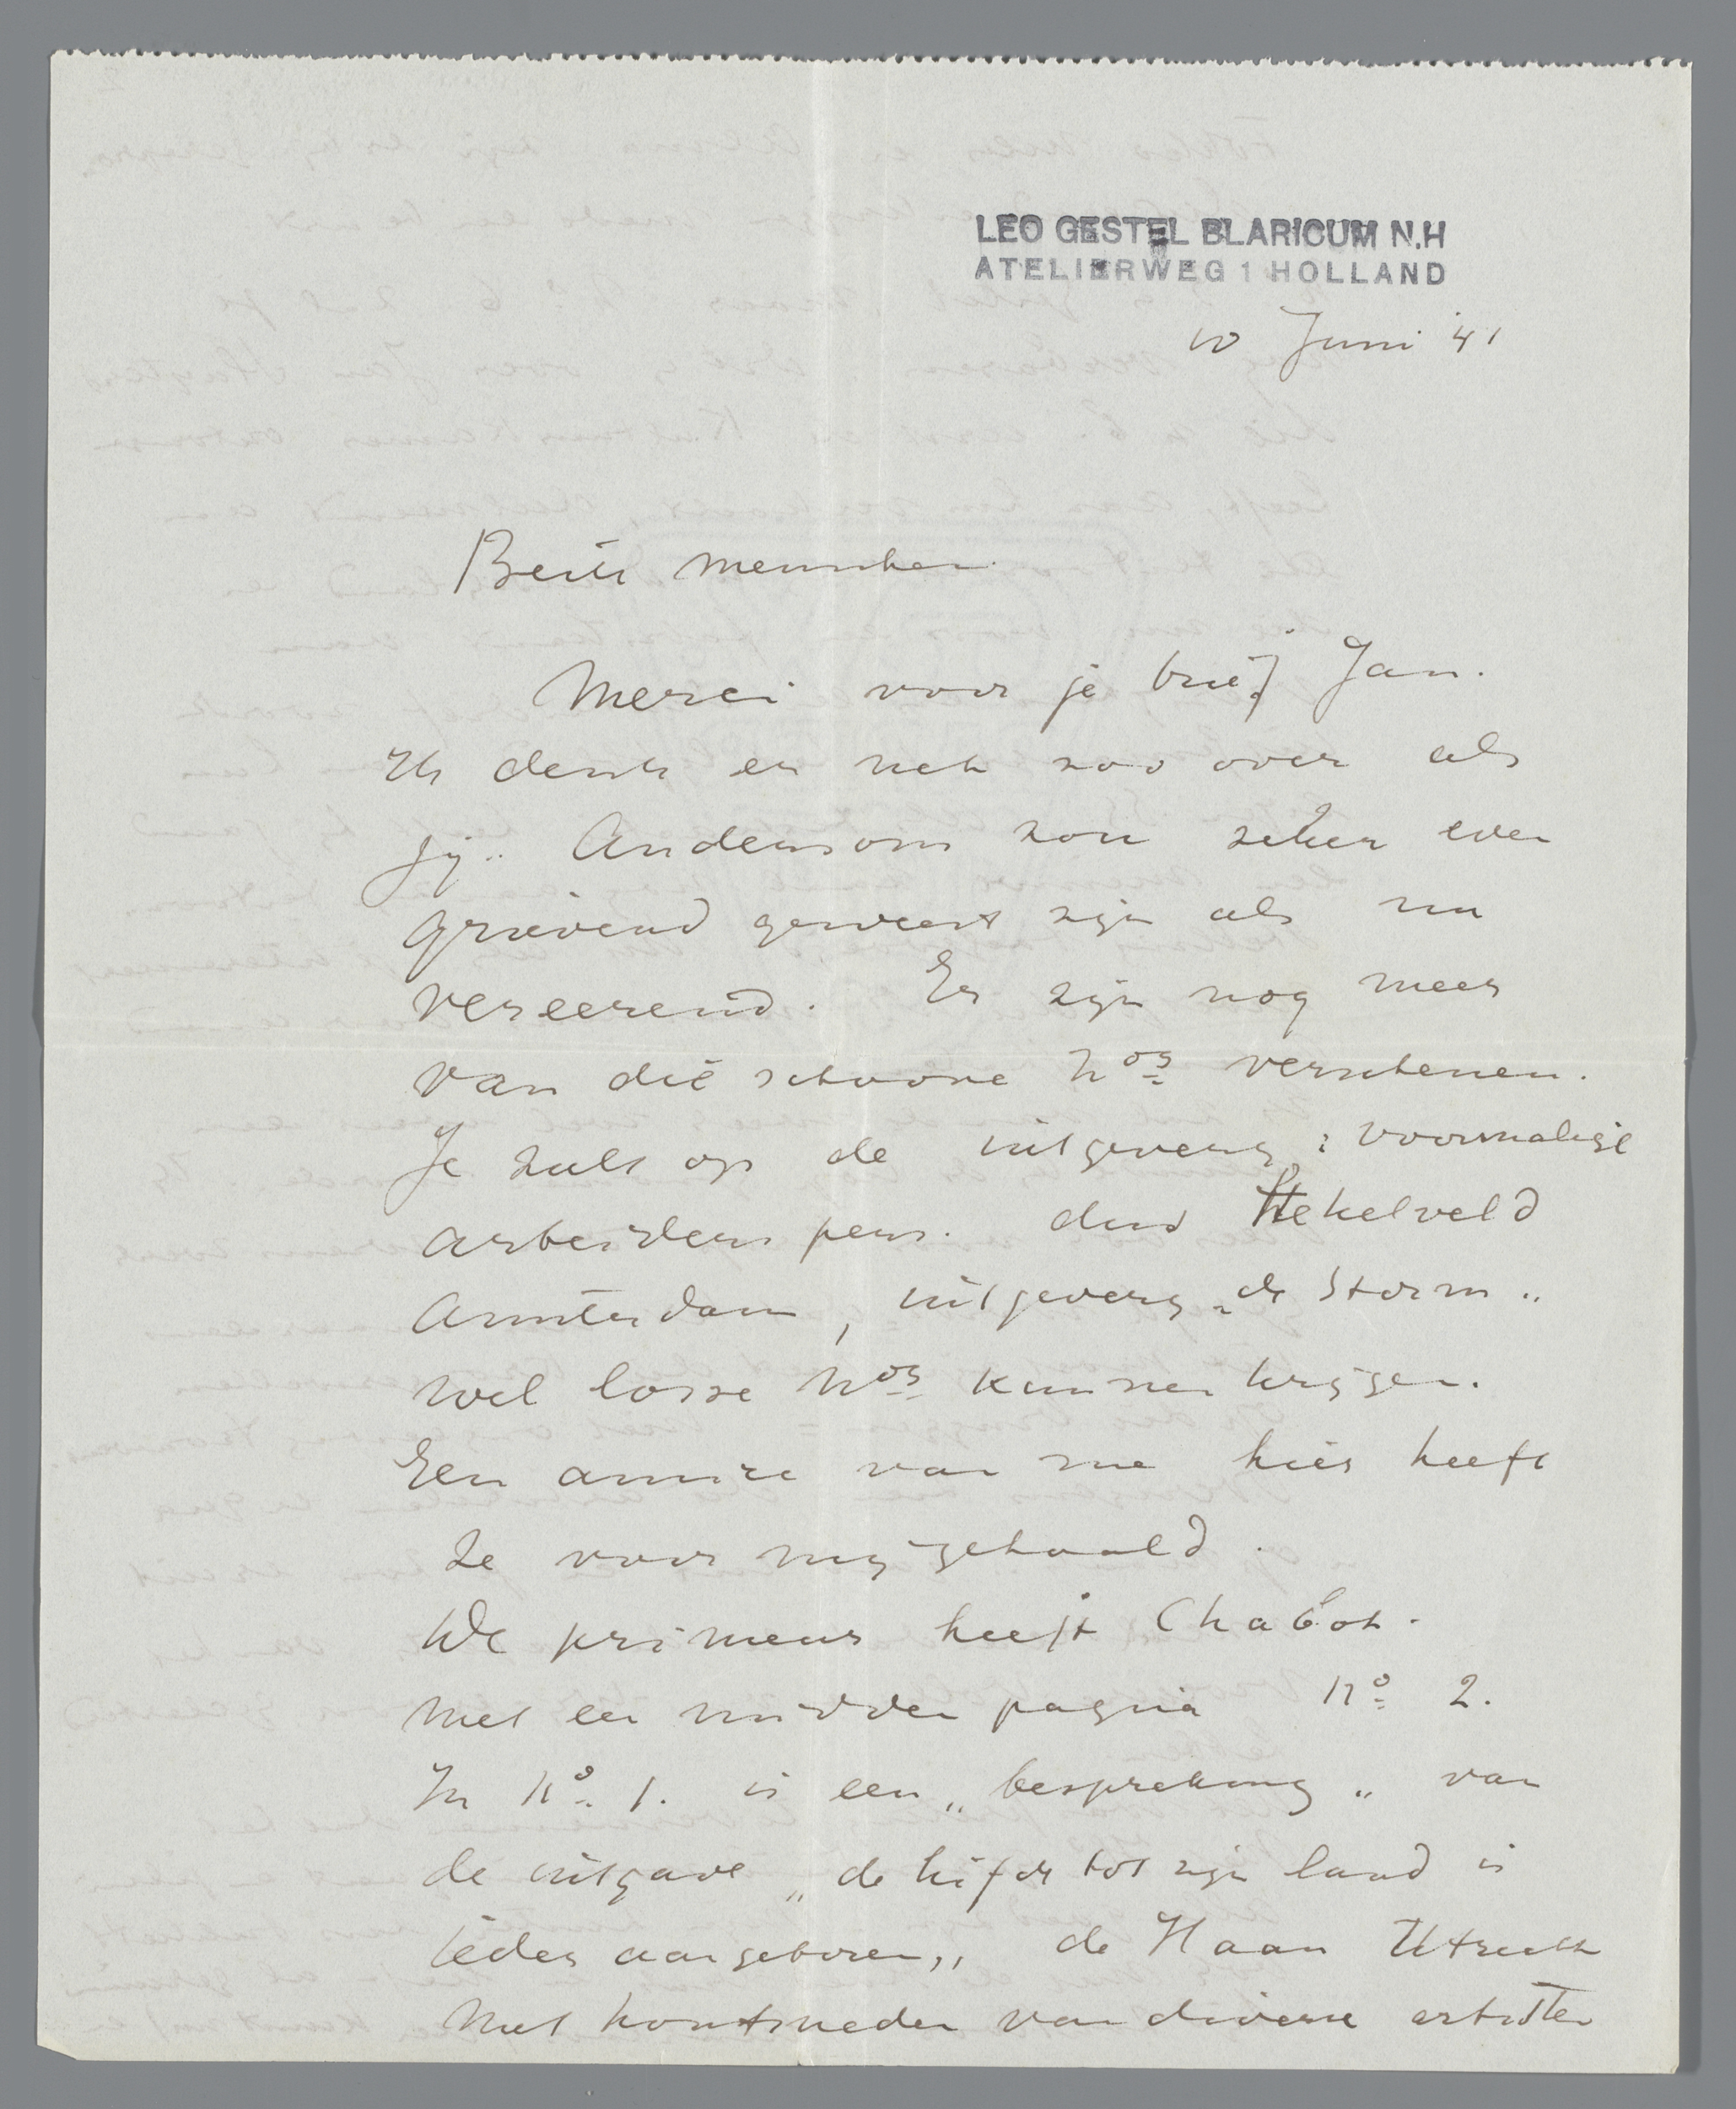 LEO GESTEL BLARICUM N.H
ATELIERWEG 1 HOLLAND
10 Juni '41
Beste menschen.
Merci voor je brief Jan.
Ik denk er net zoo over als
jij. Andersom zou zeker even
grievend geweest zijn als nu
vereerend. Er zijn nog meer
van die schoone Nos verschenen.
Je zult op de uitgeverij: voormalige
arbeiderspers. dus Hekelveld
Amsterdam, uitgeverij „de Storm"
wel losse Nos kunnen krijgen.
Een amice van me hier heeft
ze voor mij gehaald.
De primeur heeft Chabot.
Met een midden pagina No 2.
In No. 1. is een „bespreking" van
de uitgave „de liefde tot zijn land is
ieder aangeboren" de Haan Utrecht
Met houtsneden van diverse artisten